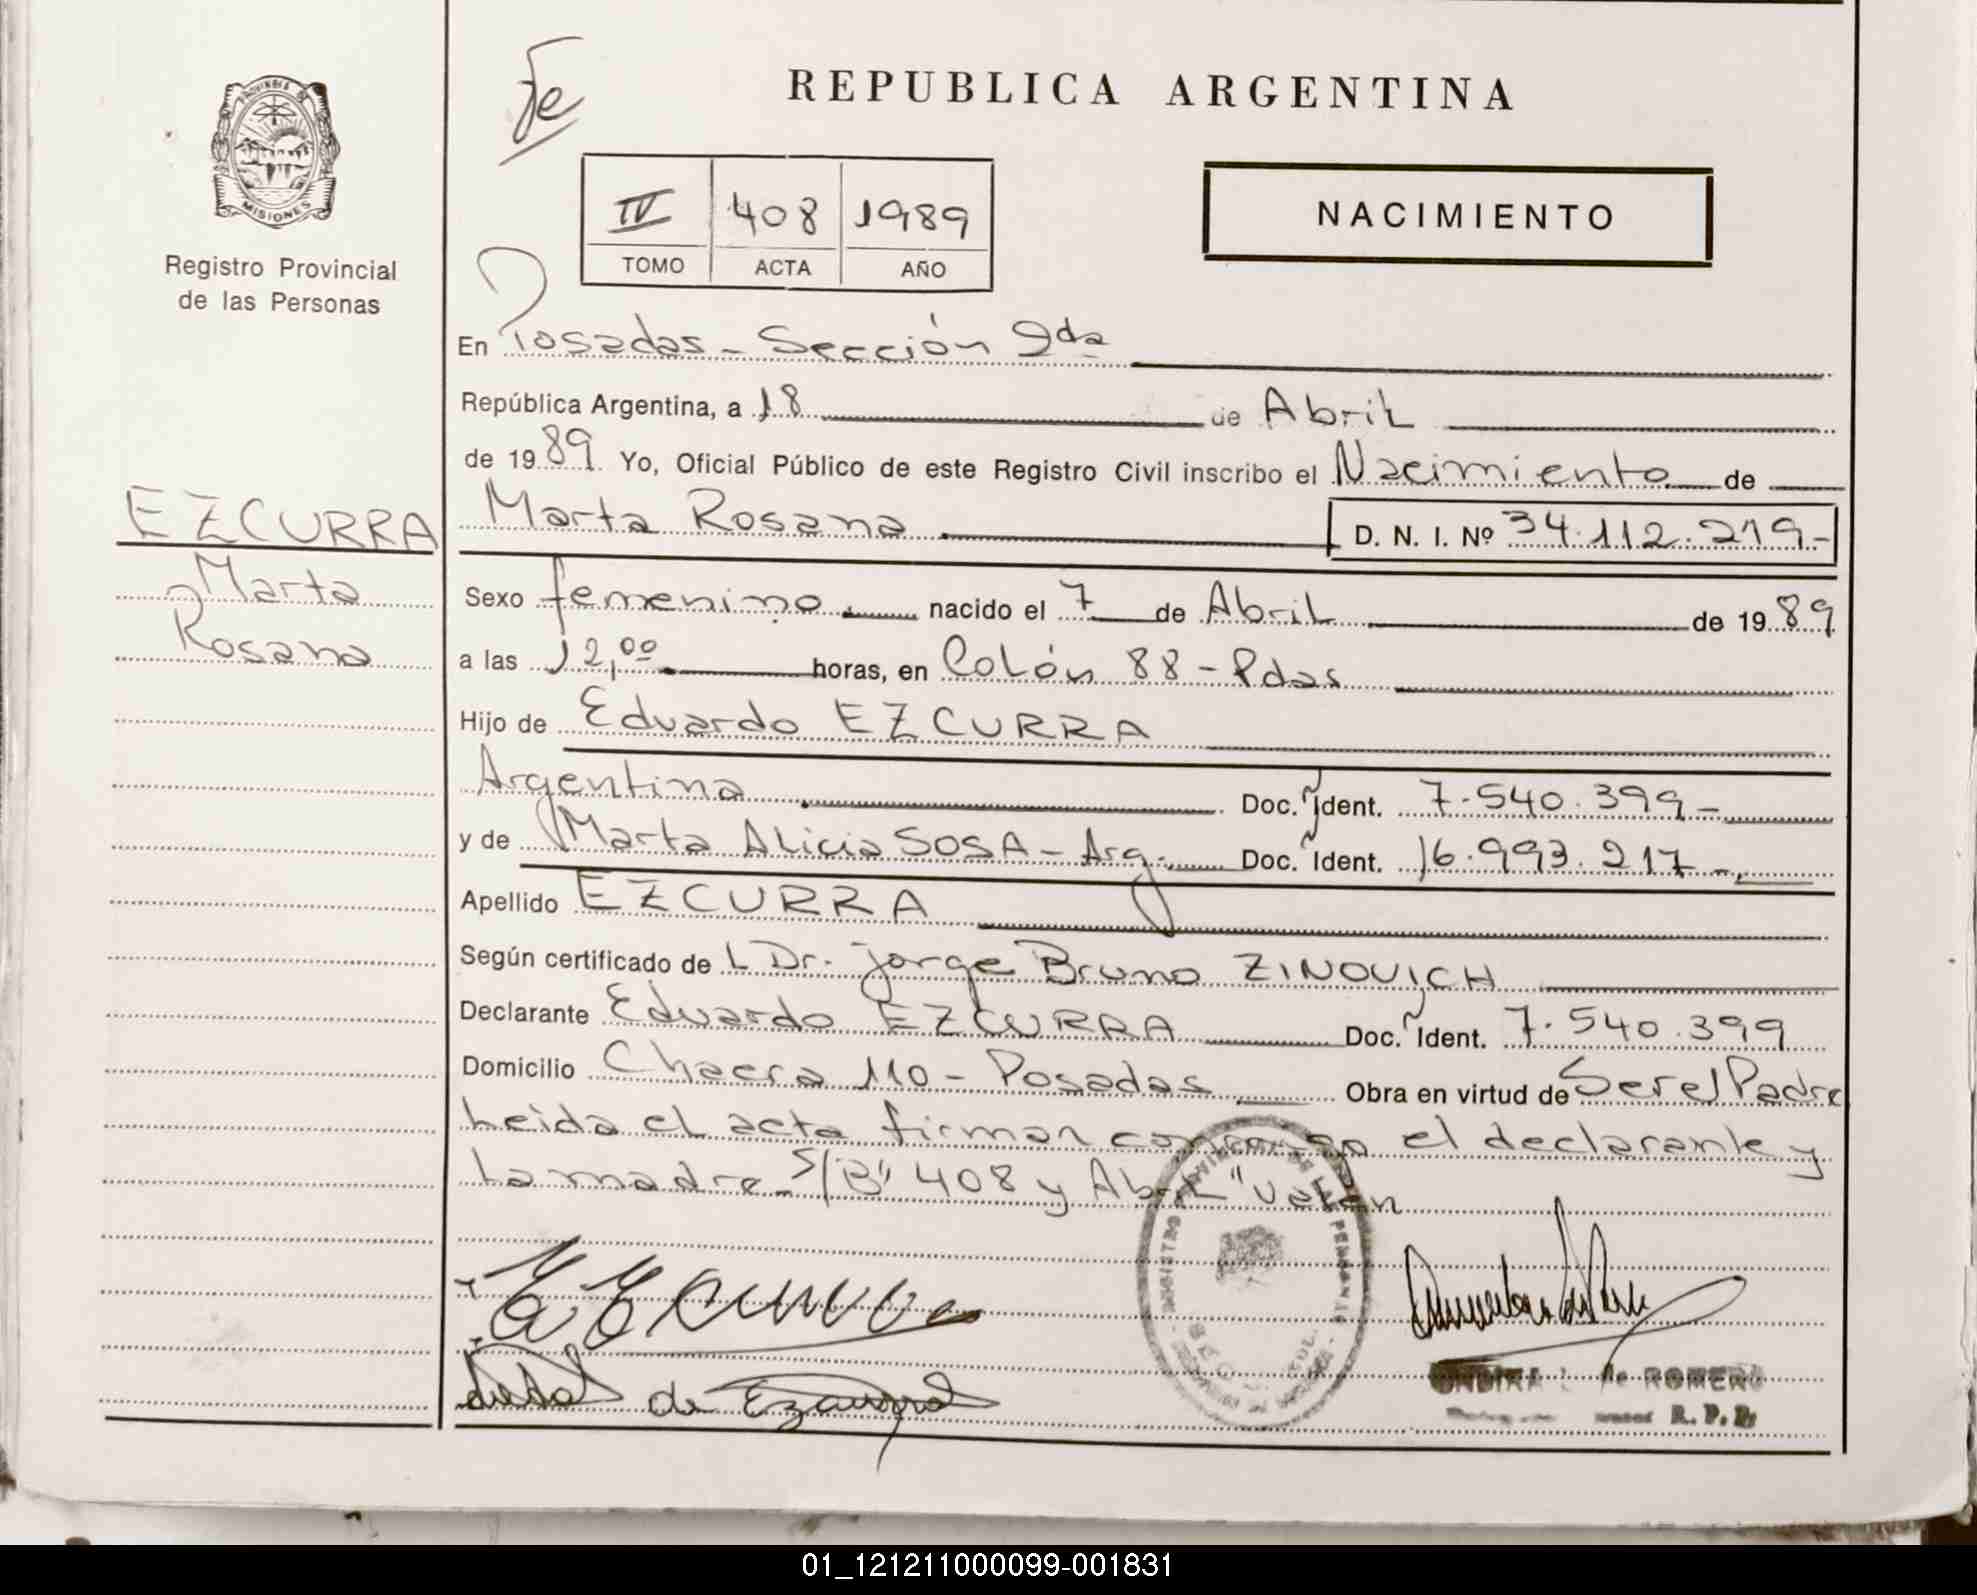 REPUBLICA ARGENTINA
PROVINCIA DE
MISIONES
Registro Provincial
de las Personas
Fe
IV 408 1989
TOMO ACTA AÑO
NACIMIENTO
En Posadas - Sección 2da
República Argentina, a 18 de Abril
de 1989. Yo, Oficial Público de este Registro Civil inscribo el Nacimiento de
EZCURRA
Marta
Rosana
Marta Rosana D. N. I. Nº 34.112.219-
Sexo femenino nacido el 7 de Abril de 1989
a las 12,00 horas, en Colón 88 - Pdas
Hijo de Eduardo EZCURRA
Argentina Doc. Ident. 7.540.399-
y de Marta Alicia SOSA - Arg. Doc. Ident. 16.993.217-
Apellido EZCURRA
Según certificado de L Dr. Jorge Bruno ZINOVICH
Declarante Eduardo EZCURRA Doc. Ident. 7.540.399
Domicilio Chacra 110 - Posadas Obra en virtud de Ser el Padre
Leida el acta firman conmigo el declarante y
la madre - S/B" 408 y Abril "Valen
de Ezcurra
de ROMERO
R. P. P.
01_121211000099-001831